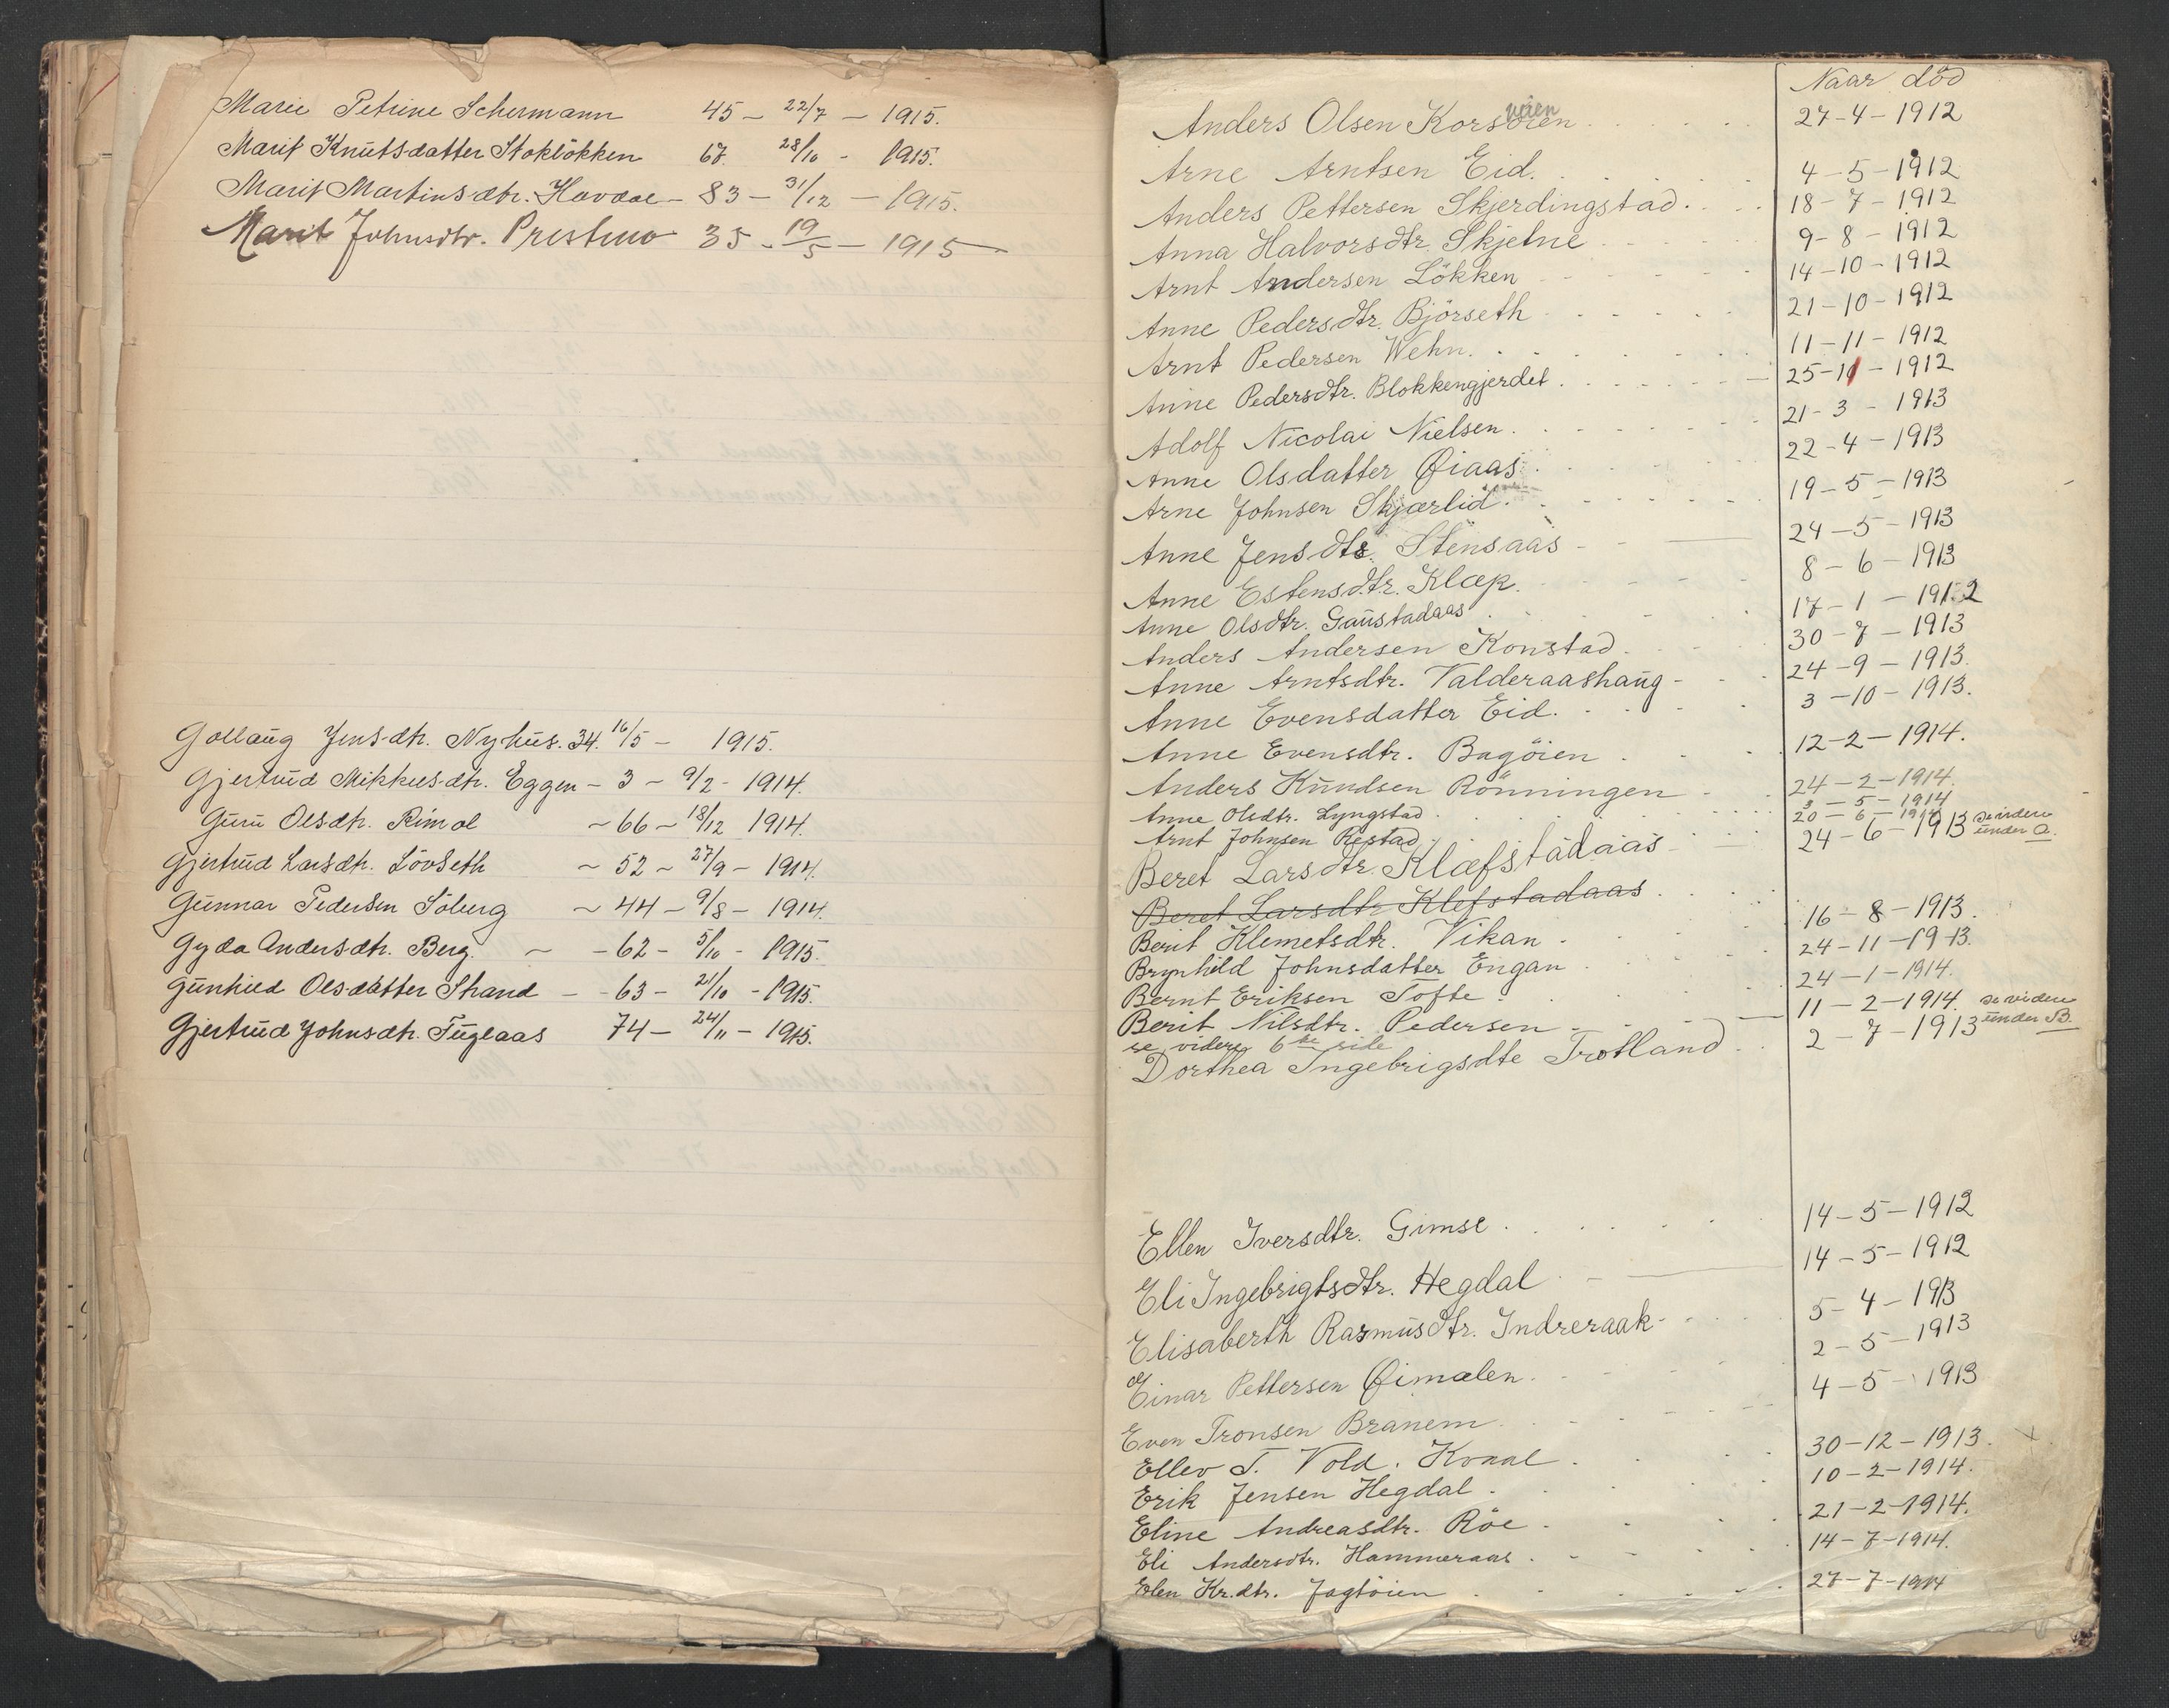 Marie Petrine Schermann 45 - 22/7 - 1915.
Marit Knutsdatter Stokløkken 67. 28/10 - 1915.
Marit Martinsdtr. Havdal - 83 - 31/12 - 1915.
Marit Johnsdtr. Prestmo 35 - 19/5 - 1915
Gollaug Jensdtr. Nyhus. 34. 16/5 - 1915.
Gjertrud Mikkelsdtr. Eggen - 3 - 9/2 - 1914.
Guru Olsdtr. Rimol - 66 - 18/12 1914.
Gjertrud Larsdtr. Lövseth - 52 - 27/9 - 1914.
Gunnar Pedersen Söberg - 44 - 9/8 - 1914.
Gyda Andersdtr. Berg. - - 62 - 5/10 - 1915.
Gunhild Olsdatter Strand - - 63 - 21/10 - 1915.
Gjertrud Johnsdtr. Tuglaas 74 - 24/11 - 1915.
Naar död
Anders Olsen Korsöien 27-4-1912
Arne Arntsen Eid. 4-5-1912
Anders Pettersen Skjerdingstad. 18-7-1912
Anna Halvorsdtr. Skjetne 9-8-1912
Arnt Andersen Lökken 14-10-1912
Anne Pedersdtr. Björseth 21-10-1912
Arnt Pedersen Wehn. 11-11-1912
Anne Pedersdtr. Blokkengjerdet. 25-11-1912
Adolf Nicolai Nielsen. 21-3-1913
Anne Olsdatter Øiaas. 22-4-1913
Arne Johnsen Skjærlid. 19-5-1913
Anne Jensdtr. Stensaas 24-5-1913
Anne Estensdtr. Klæp. 8-6-1913
Anne Olsdtr. Gaustadaas 17-1-1912
Anders Andersen Konstad. 30-7-1913
Anne Arntsdtr. Valderaashaug 24-9-1913.
Anne Evensdatter Eid. 3-10-1913.
Anne Evensdtr. Bagöien 12-2-1914.
Anders Knudsen Rönningen 24-2-1914.
Anne Olsdtr. Lyngstad 3-5-1914
Arnt Johnsen Reftad 20-6-1914 se videre under A.
Beret Larsdtr. Klæfstadaas 24-6-1913
Beret Larsdtr Klefstadaas
Berit Klemetsdtr. Vikan 16-8-1913.
Brynhild Johnsdatter Engan 24-11-1913.
Bernt Eriksen Tofte 24-1-1914.
Berit Nilsdtr. Pedersen 11-2-1914. se videre under B.
se videre 6te side
Dorthea Ingebrigsdte Trotland 2-7-1913
Ellen Iversdtr. Gimse 14-5-1912
Eli Ingebrigtsdtr. Hegdal 14-5-1912
Elisaberth Rasmusdtr. Indreraak 5-4-1913
Einar Pettersen Øimælen. 2-5-1913
Even Tronsen Branem 4-5-1913
Ellev T. Vold. Kvaal 30-12-1913. x
Erik Jensen Hegdal 10-2-1914.
Eline Andreasdtr. Röe 21-2-1914.
Eli Andersdtr. Hammeraas 14-7-1914.
Elen Kr.dtr. Jagtöien 27-7-1914